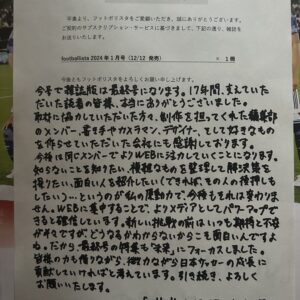 平素より、フットボリスタをご愛顧いただき、誠にありがとうございます。
ご契約のサブスクリプション・サービスに基づきまして、下記の通り、雑誌を
お送りいたします。
footballista 2024年1月号(12/12 発売) × 1冊
今後ともフットボリスタをよろしくお願い申し上げます。
今号で雑誌版は最終号になります。17年間、支えていた
だいた読者の皆様、本当にありがとうございました。
取材に協力していただいた方々、制作を担ってくれた編集部
のメンバー、書き手やカメラマン、デザイナー、そして好きなもの
を作らせていただいた会社にも感謝しております。
今後は同じメンバーでよりWEBに注力していくことになります。
知らないことを知りたい、複雑なものを整理して解決策を
探りたい、面白い人を紹介したい(できれば、その人の後押しも
したい)…というのが私の原動力で、今後もそれは変わりま
せん。WEBに集中することで、よりメディアとしてパワーアップで
きると確信しています。新しい挑戦の前はいつも期待と不安
が半々ですが、どうなるかわからないからこそ面白いんですよ
ね。だから、最終号の特集も"未来"にフォーカスしました。
皆様の力も借りながら、微力ながら日本サッカーの成長に
貢献していければと考えています。引き続き、よろしく
お願いいたします。